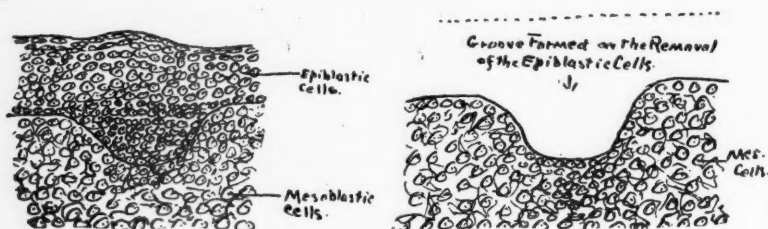 Epiblastic
Cells.
Mesoblastic
Cells.
Groove Formed on the Removal
of the Epiblastic Cells.
Mes.
Cells.